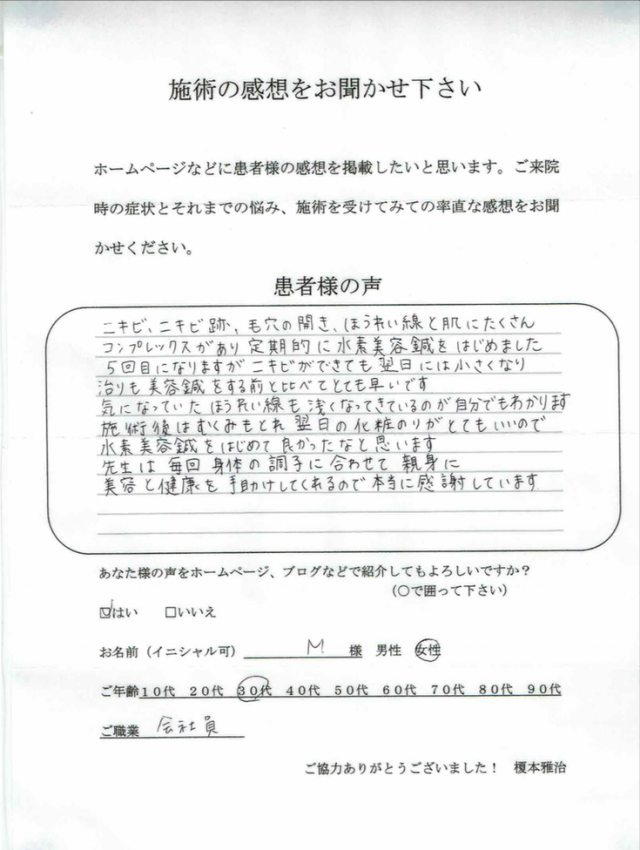 施術の感想をお聞かせ下さい
ホームページなどに患者様の感想を掲載したいと思います。ご来院
時の症状とそれまでの悩み、施術を受けてみての率直な感想をお聞
かせください。
患者様の声
ニキビ、ニキビ跡、毛穴の開き、ほうれい線と肌にたくさん
コンプレックスがあり定期的に水素美容鍼をはじめました
5回目になりますがニキビができても翌日には小さくなり
治りも美容鍼をする前と比べてとても早いです
気になっていたほうれい線も浅くなってきているのが自分でもわかります
施術後はむくみもとれ翌日の化粧のりがとてもいいので
水素美容鍼をはじめて良かったなと思います
先生は毎回身体の調子に合わせて親身に
美容と健康を手助けしてくれるので本当に感謝しています
あなた様の声をホームページ、ブログなどで紹介してもよろしいですか？
（○で囲って下さい）
☑はい ☐いいえ
お名前（イニシャル可） M 様 男性 女性
ご年齢 10代 20代 30代 40代 50代 60代 70代 80代 90代
ご職業 会社員
ご協力ありがとうございました！ 榎本雅治